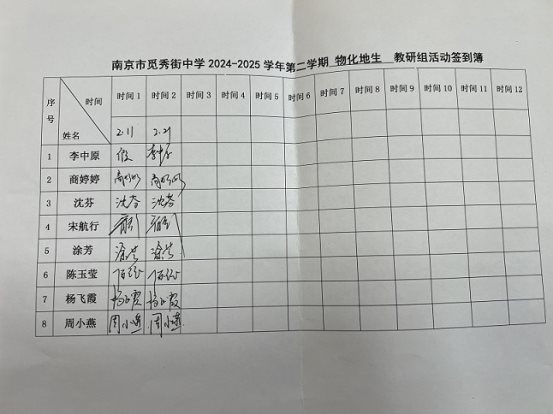 南京市觅秀街中学2024-2025学年第二学期 物化地生 教研组活动签到簿
序号 时间 姓名 时间1 时间2 时间3 时间4 时间5 时间6 时间7 时间8 时间9 时间10 时间11 时间12
2.11 2.21
1 李中原 假
2 商婷婷 商婷婷 商婷婷
3 沈芬 沈芬 沈芬
4 宋航行
5 涂芳 涂芳 涂芳
6 陈玉莹
7 杨飞霞 杨飞霞 杨飞霞
8 周小燕 周小燕 周小燕